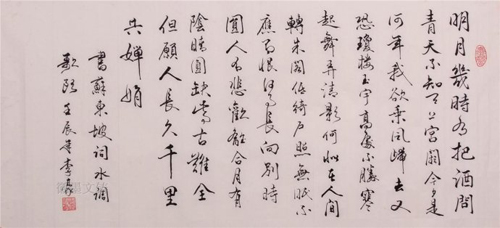 明月幾時有把酒問
青天不知天上宮闕今夕是
何年我欲乘風歸去又
恐瓊樓玉宇高處不勝寒
起舞弄清影何似在人間
轉朱閣低綺戶照無眠不
應有恨何事長向別時
圓人有悲歡離合月有
陰晴圓缺此事古難全
但願人長久千里
共嬋娟
書蘇東坡詞水調
歌頭壬辰李